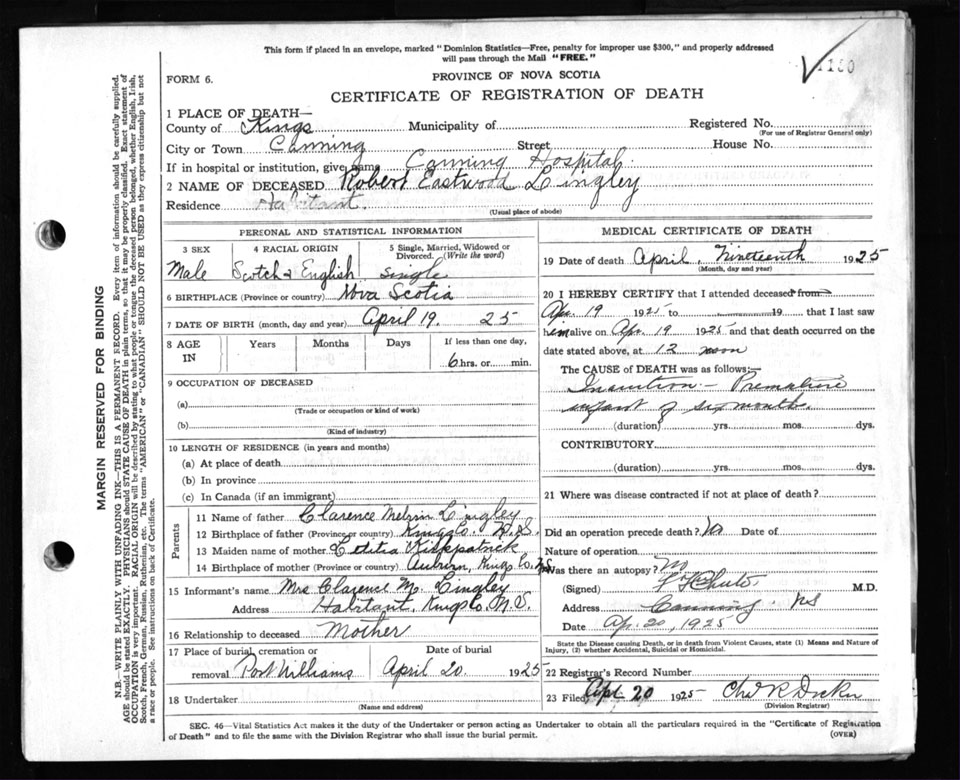 This form if placed in an envelope, marked "Dominion Statistics—Free, penalty for improper use $300," and properly addressed
will pass through the Mail "FREE."
1150
FORM 6.
PROVINCE OF NOVA SCOTIA
CERTIFICATE OF REGISTRATION OF DEATH
1 PLACE OF DEATH—
County of Kings Municipality of Registered No.
(For use of Registrar General only)
City or Town Canning Street House No.
If in hospital or institution, give name Canning Hospital.
2 NAME OF DECEASED Robert Eastwood Lingley
Residence Habitant.
(Usual place of abode)
PERSONAL AND STATISTICAL INFORMATION
3 SEX 4 RACIAL ORIGIN 5 Single, Married, Widowed or Divorced. (Write the word)
Male Scotch & English single
6 BIRTHPLACE (Province or country) Nova Scotia
7 DATE OF BIRTH (month, day and year) April 19. 25
8 AGE IN Years Months Days If less than one day,
6 hrs. or min.
9 OCCUPATION OF DECEASED
(a)
(Trade or occupation or kind of work)
(b)
(Kind of industry)
10 LENGTH OF RESIDENCE (in years and months)
(a) At place of death
(b) In province
(c) In Canada (if an immigrant)
Parents
11 Name of father Clarence Melvin Lingley
12 Birthplace of father (Province or country) Kings Co. N.S.
13 Maiden name of mother Kirkpatrick
14 Birthplace of mother (Province or country) Auburn, Kings Co. N.S.
15 Informant's name Mrs Clarence M. Lingley
Address Habitant, Kings Co. N.S.
16 Relationship to deceased Mother
17 Place of burial, cremation or removal Port Williams Date of burial April 20. 1925
18 Undertaker
(Name and address)
MEDICAL CERTIFICATE OF DEATH
19 Date of death April, Nineteenth 1925
(Month, day and year)
20 I HEREBY CERTIFY that I attended deceased from
Apr. 19 1925 to 19 that I last saw
him alive on Apr. 19 1925 and that death occurred on
date stated above, at 12 noon
The CAUSE of DEATH was as follows:—
Inanition — Premature
infant of six months.
(duration) yrs. mos. dys.
CONTRIBUTORY
(duration) yrs. mos. dys.
21 Where was disease contracted if not at place of death?
Did an operation precede death? No Date of
Nature of operation
Was there an autopsy? No
(Signed) Chute M.D.
Address Canning, NS
Date Ap. 20, 1925
State the Disease causing Death, or in death from Violent Causes, state (1) Means and Nature of
Injury, (2) whether Accidental, Suicidal or Homicidal.
22 Registrar's Record Number
23 Filed Apl 20 1925
(Division Registrar)
SEC. 46—Vital Statistics Act makes it the duty of the Undertaker or person acting as Undertaker to obtain all the particulars required in the "Certificate of Registration
of Death" and to file the same with the Division Registrar who shall issue the burial permit.
(OVER)
MARGIN RESERVED FOR BINDING
N.B.—WRITE PLAINLY WITH UNFADING INK—THIS IS A PERMANENT RECORD. Every item of information should be carefully supplied.
AGE should be stated EXACTLY. PHYSICIANS should STATE CAUSE OF DEATH in plain terms, so that it may be properly classified. Exact statement of
OCCUPATION is very important. RACIAL ORIGIN will be described by stating to what people or tongue the deceased person belonged, whether English, Irish,
Scotch, French, German, Russian, Ruthenian, etc. The terms "AMERICAN" or "CANADIAN" SHOULD NOT BE USED as they express citizenship but not
a race or people. See instructions on back of Certificate.